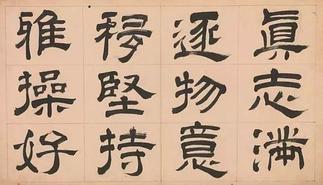 真志滿
逐物意
移堅持
雅操好